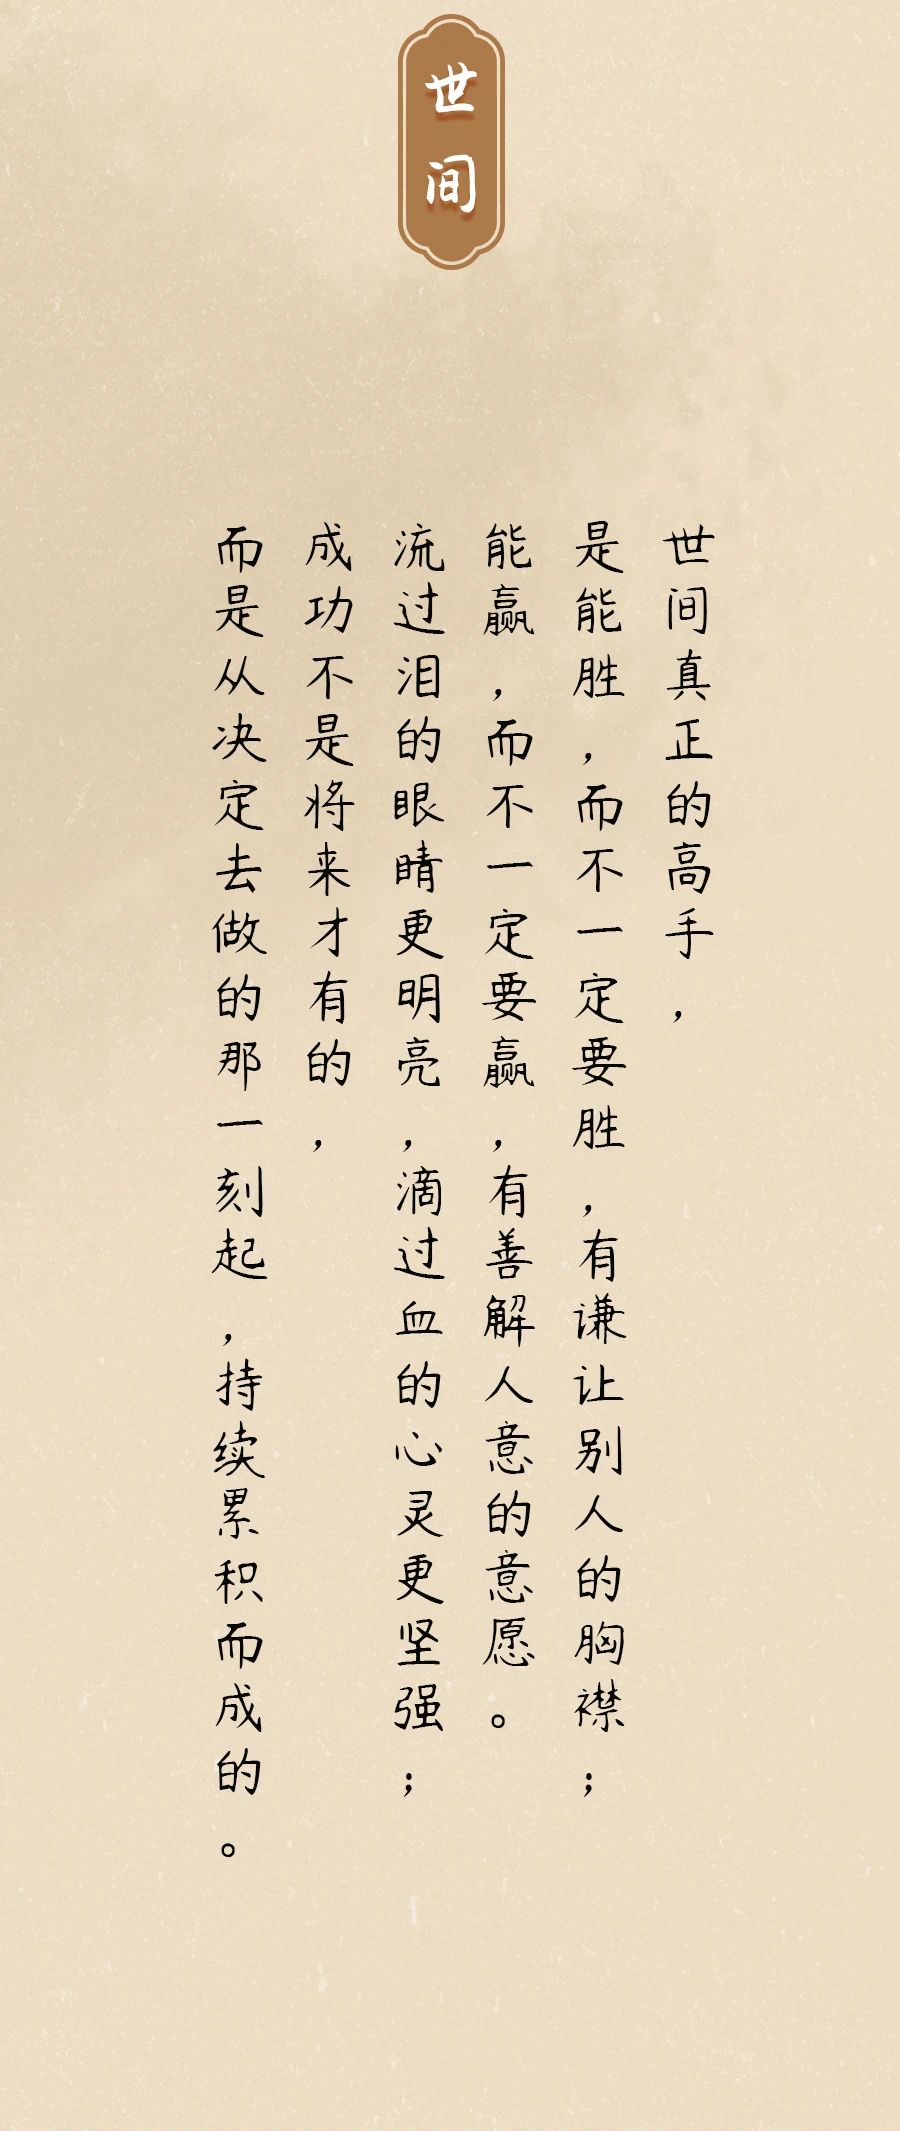 世间
世间真正的高手，
是能胜，而不一定要胜，有谦让别人的胸襟；
能赢，而不一定要赢，有善解人意的意愿。
流过泪的眼睛更明亮，滴过血的心灵更坚强；
成功不是将来才有的，
而是从决定去做的那一刻起，持续累积而成的。